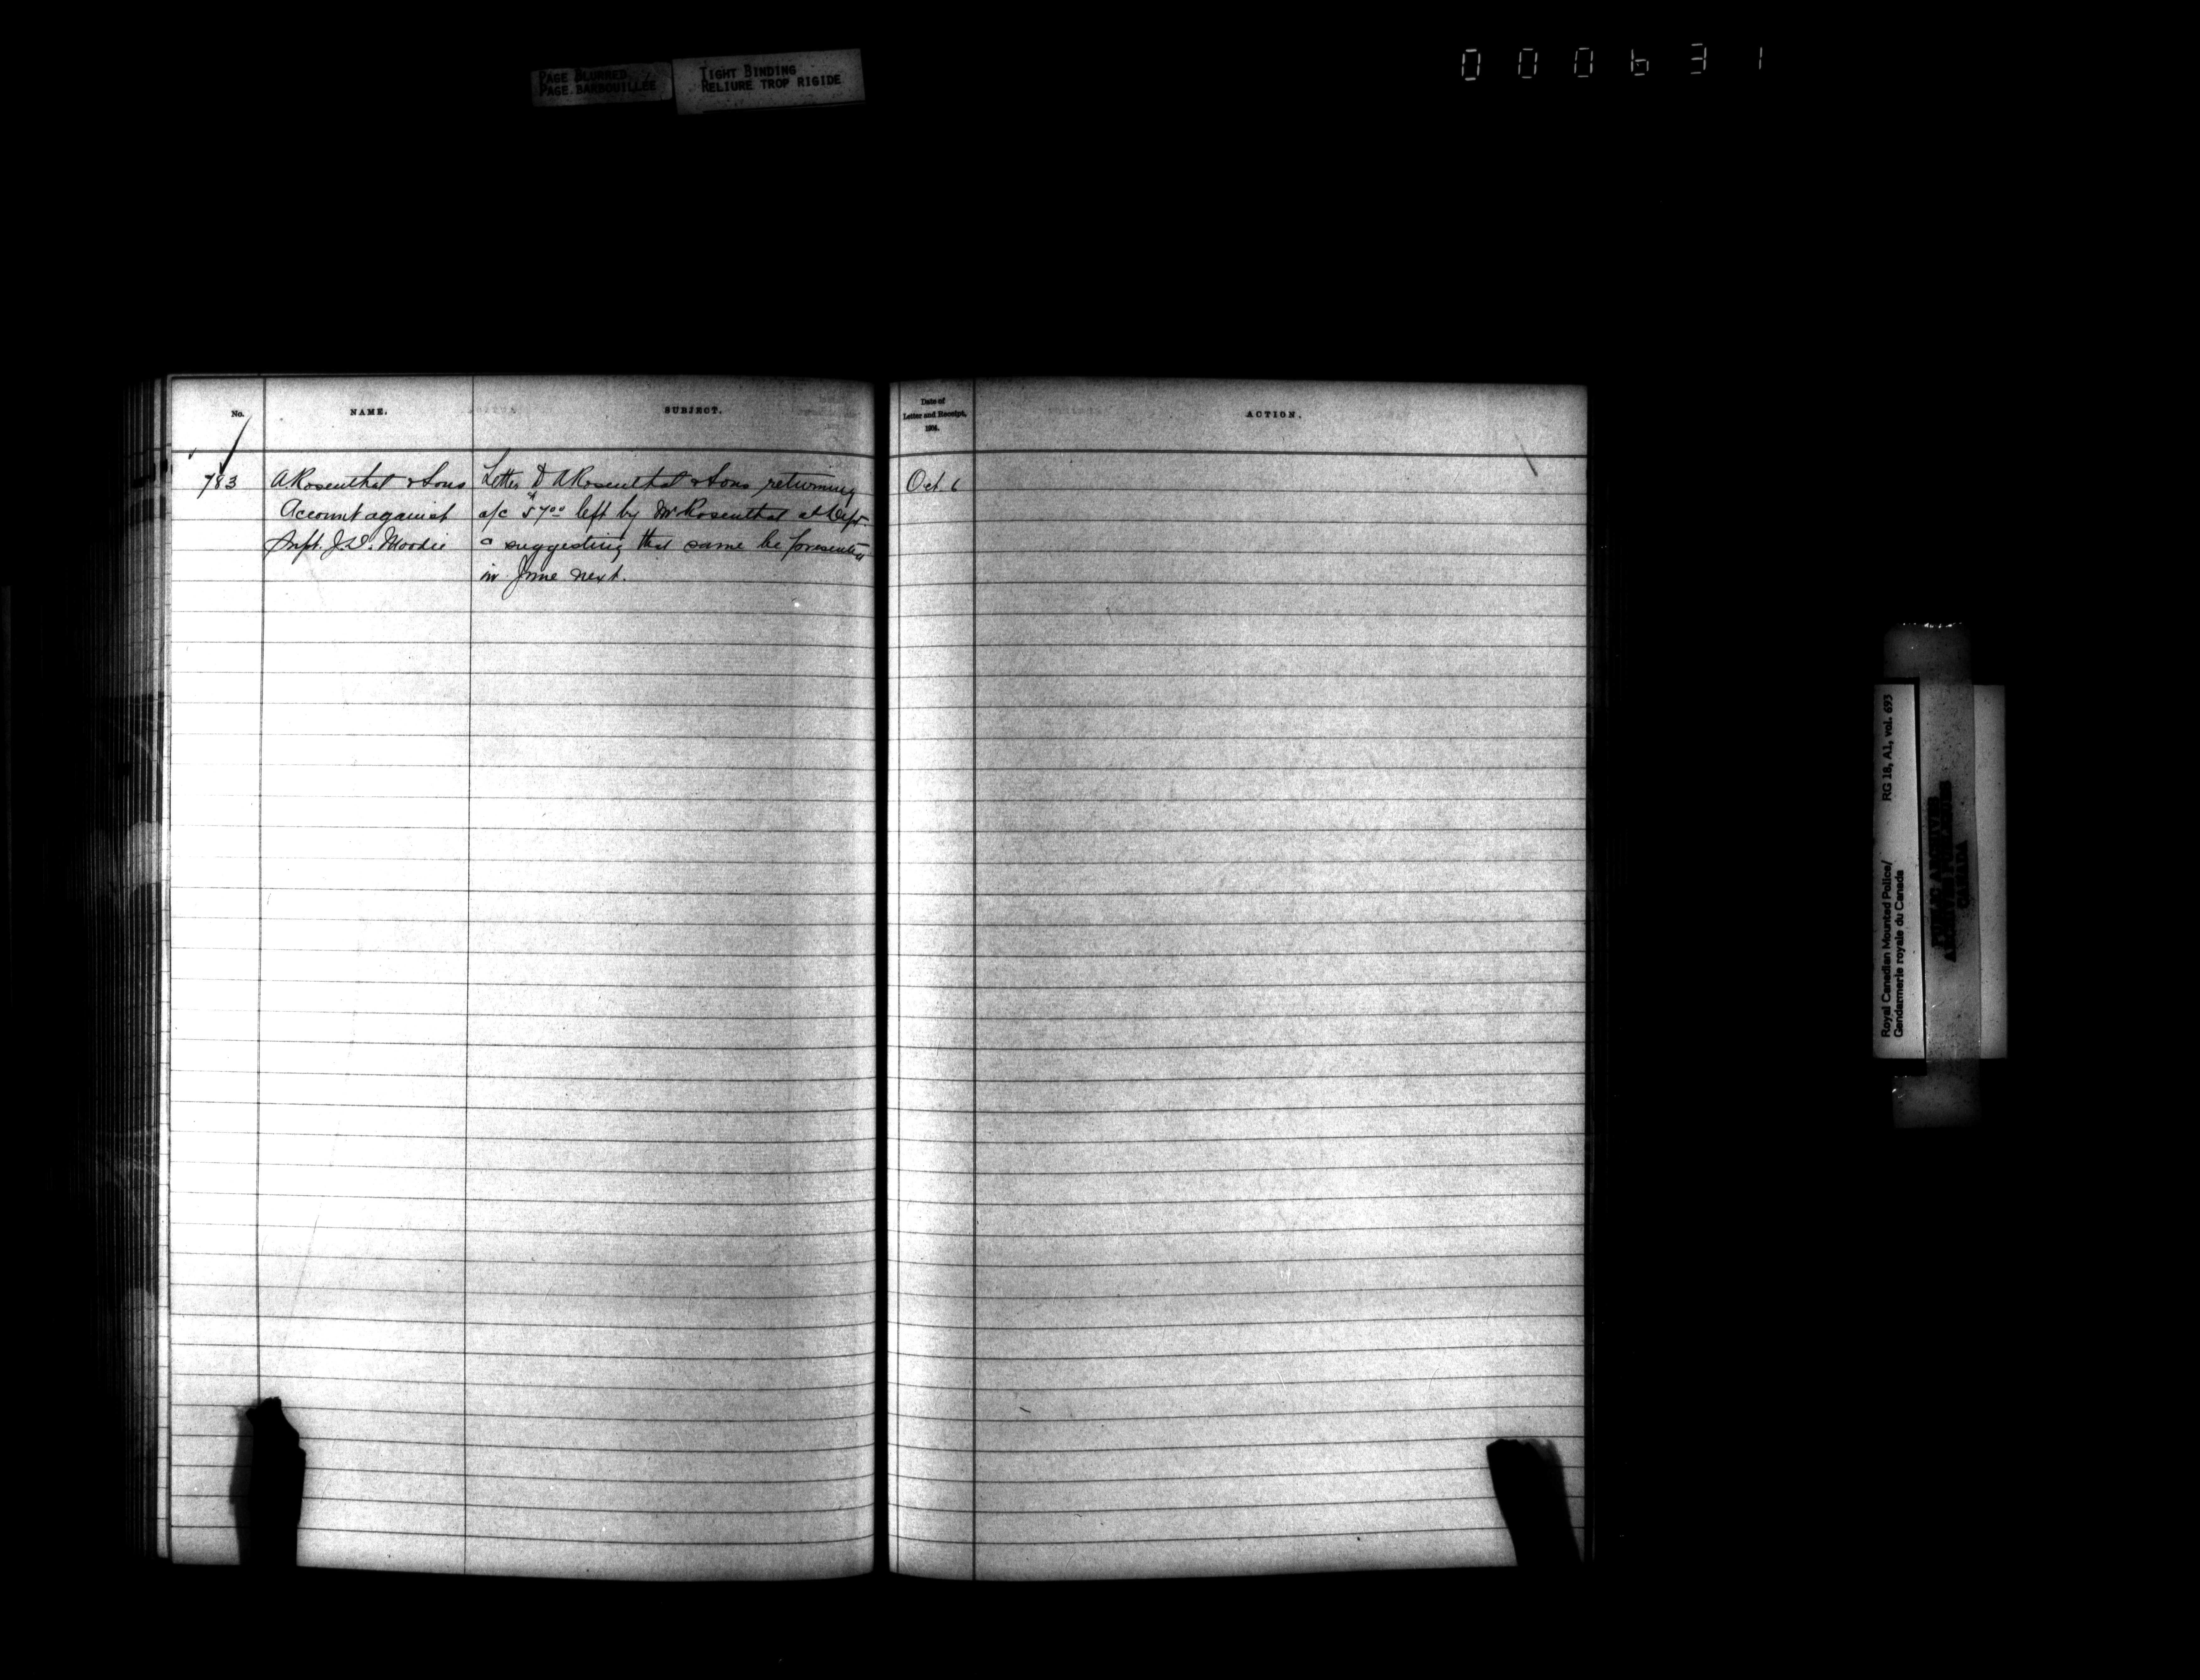 PAGE BLURRED
PAGE BARBOUILLÉE
TIGHT BINDING
RELIURE TROP RIGIDE
000631
No.
NAME.
SUBJECT.
Date of
Letter and Receipt,
1904.
ACTION.
783
A Rosenthal & Sons
Account against
Supt. J.D. Moodie
Letter to A Rosenthal & Sons returning
a/c $57.00 left by Mr Rosenthal at Dept
& suggesting that same be presented
in June next.
Oct. 6
RG 18, A1, vol. 693
Royal Canadian Mounted Police/
Gendarmerie royale du Canada
PUBLIC ARCHIVES
ARCHIVES PUBLIQUES
CANADA